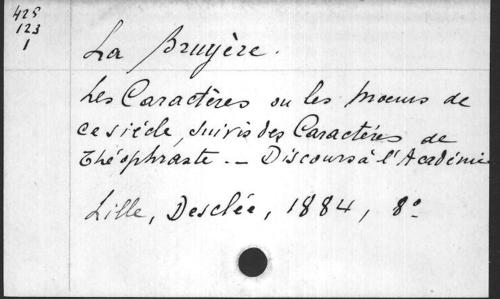 425
123
1
La Bruyère.
Les Caractères ou les Moeurs de
ce siécle, suivis des Caractéres de
Théophraste. — Discours à l'Académie
Lille, Desclée, 1884, 8º